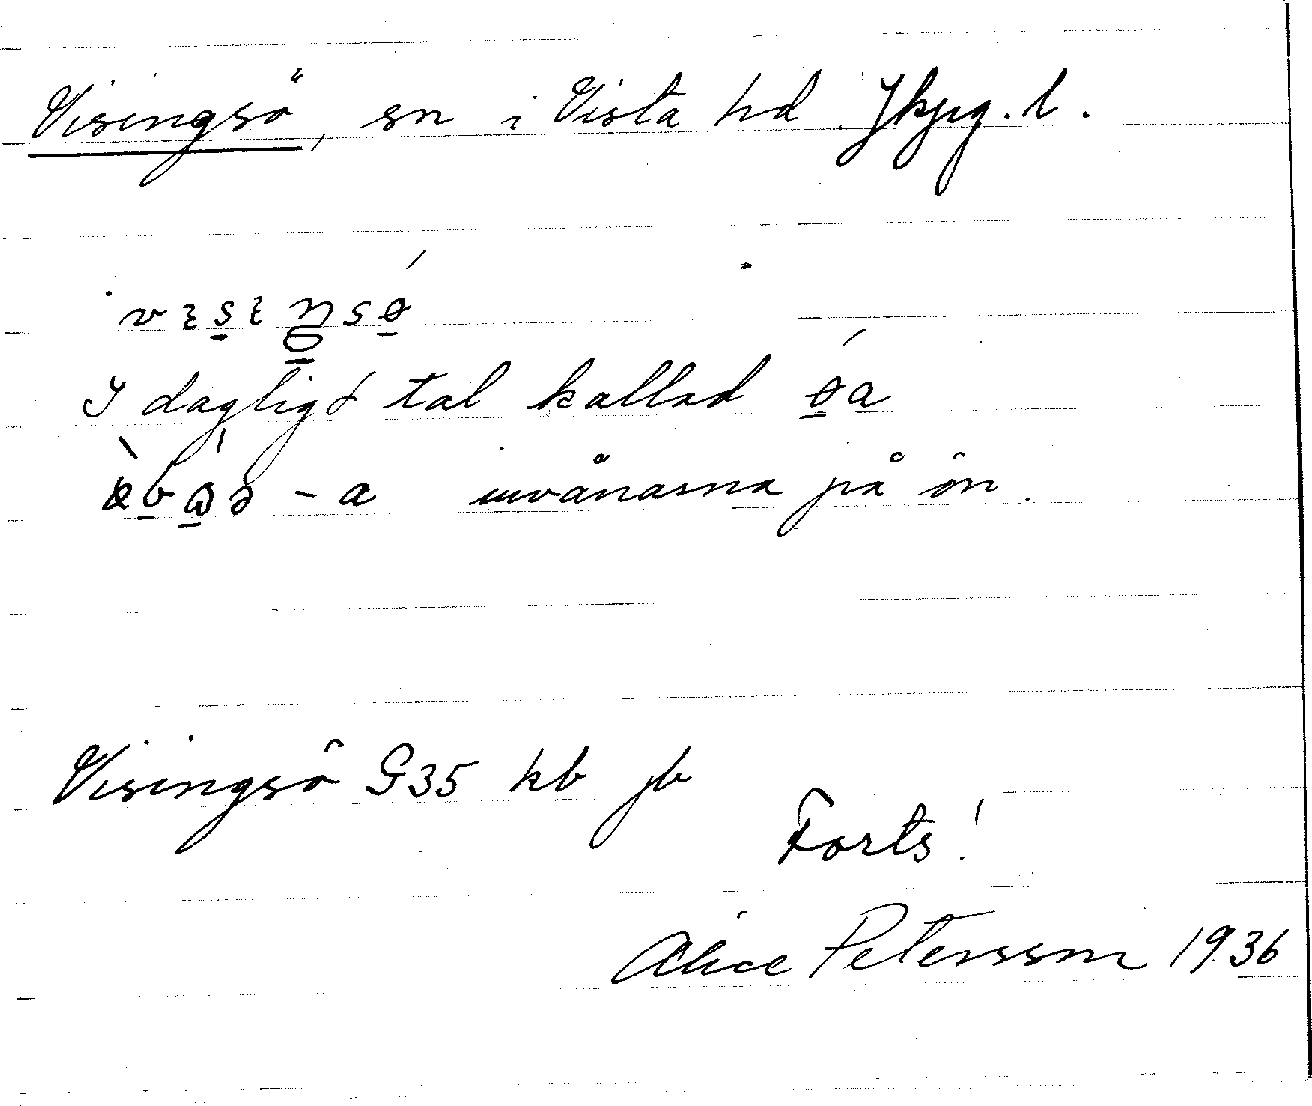 Visingsö, sn i Vista hd Jkpg. l.
I dagligt tal kallad øa
-a invånarna på ön.
Visingsö G35 kb jb
Forts!
Alice Petersson 1936